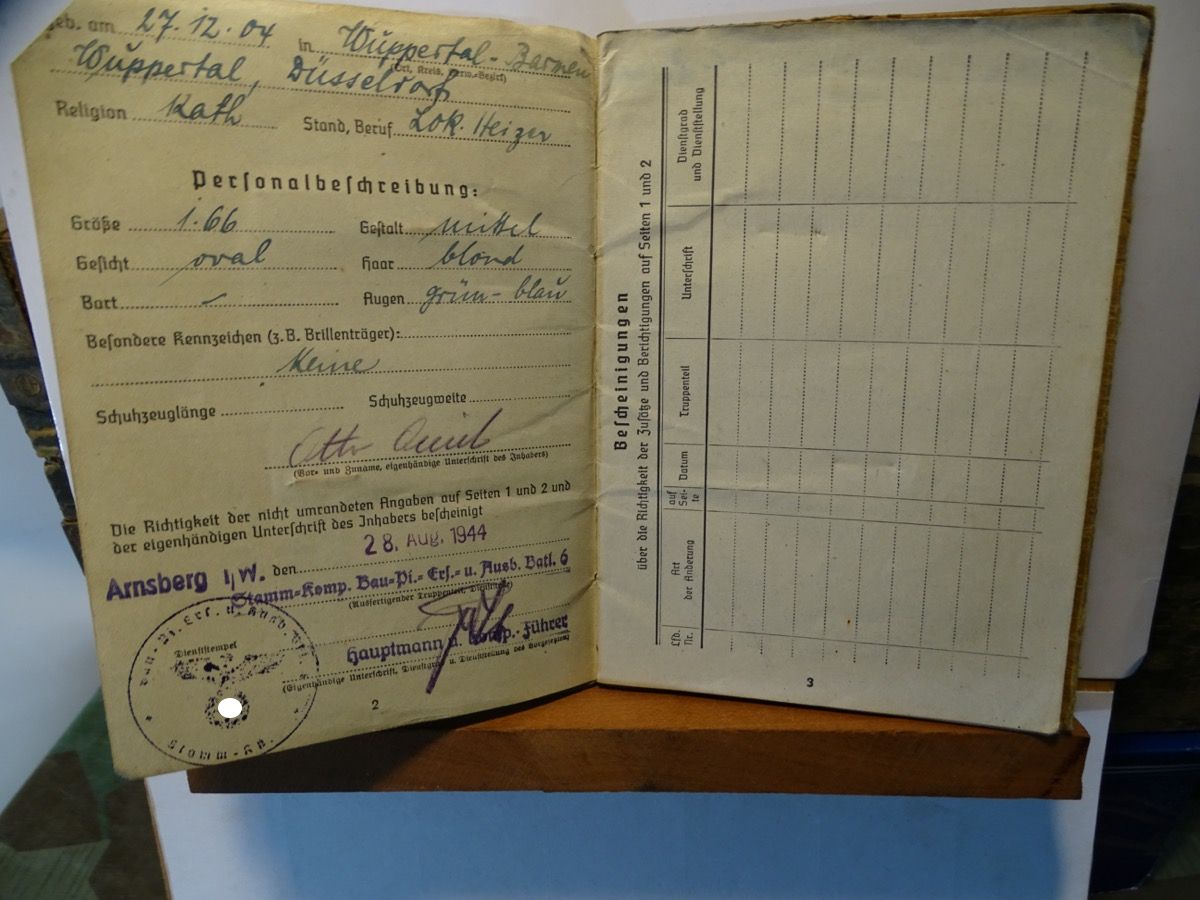 geb. am 27.12.04 in Wuppertal-Barmen
(Ort, Kreis, Verw.-Bezirk)
Wuppertal, Düsseldorf
Religion Kath Stand, Beruf Lok. Heizer
Personalbeſchreibung:
Größe 1.66 Geſtalt mittel
Geſicht oval Haar blond
Bart – Augen grün-blau
Beſondere Kennzeichen (z.B. Brillenträger):
Keine
Schuhzeuglänge Schuhzeugweite
Otto
(Vor- und Zuname, eigenhändige Unterſchrift des Inhabers)
Die Richtigkeit der nicht umrandeten Angaben auf Seiten 1 und 2 und
der eigenhändigen Unterſchrift des Inhabers beſcheinigt
28. Aug. 1944
Arnsberg i/W. den
Stamm-Komp. Bau-Pi.-Erſ.- u. Ausb. Batl. 6
(Ausfertigender Truppenteil, Dienſtſtelle)
Hauptmann u. Komp.-Führer
(Eigenhändige Unterſchrift, Dienſtgrad u. Dienſtſtellung des Vorgeſetzten)
Bau-Pi.-Erſ. u. Ausb. Batl.
Dienſtſtempel
Stamm-Kp.
2
Beſcheinigungen
über die Richtigkeit der Zuſätze und Berichtigungen auf Seiten 1 und 2
Lfd. Nr.
Art der Änderung
auf Sei-te
Datum
Truppenteil
Unterſchrift
Dienſtgrad und Dienſtſtellung
3